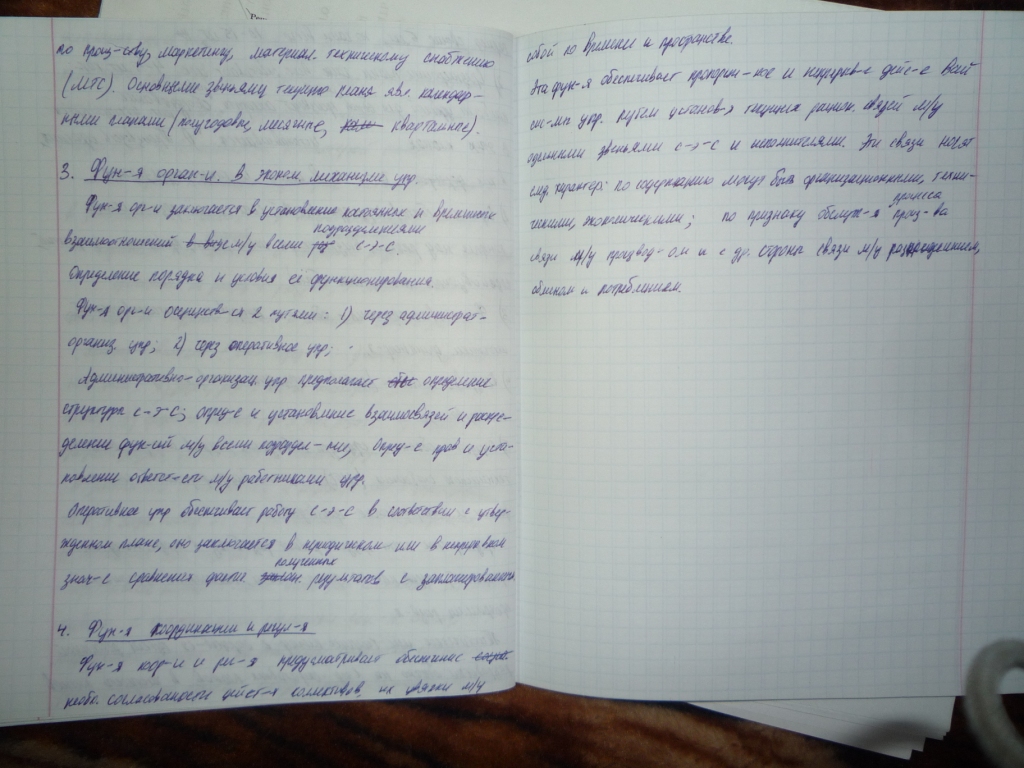 по произ-ству, маркетингу, материал. техническому снабжению
(МТС). Основными звеньями текущего плана явл. календар-
ными планами (полугодовые, месячные, квартальные).
3. Фун-я орган-и. в эконом. механизме упр.
Фун-я ор-и заключается в установление постоянных и временных
подразделениями
взаимоотношений в виде м/у всеми с-э-с.
Определение порядка и условия её функционирования.
Фун-я ор-и осуществ-ся 2 путями: 1) через администрат-
организ. упр; 2) через оперативное упр;
Административно-организац. упр предполагает определение
структуры с-э-с; опред-е и установление взаимосвязей и распре-
деление фун-ий м/у всеми подраздел-ние; опред-е прав и уста-
новление ответст-сти м/у работниками упр.
Оперативное упр обеспечивает работу с-э-с в соответствии с утвер-
жденном плане, оно заключается в периодичном или в непрерывном
полученных
знач-е сравнения фактич. результатов с запланированными
4. Фун-я координации и регул-я
Фун-я коор-и и рег-я предусматривает обеспечение
необх. согласованности дейст-я коллективов, их увязки м/у
собой по времени и пространстве.
Эта фун-я обеспечивает пропорцион-ное и непрерыв-е дейс-е всей
сис-мы упр. путем установ-я текущих рацион. связей м/у
отдельными звеньями с-э-с и исполнителями. Эти связи носят
след. характер: по содержанию могут быть организационными, техни-
процесса
ческими, экономическими; по признаку обслуж-я произ-ва
связи м/у производ-ом и с др. стороны связи м/у распределением,
обменом и потреблением.